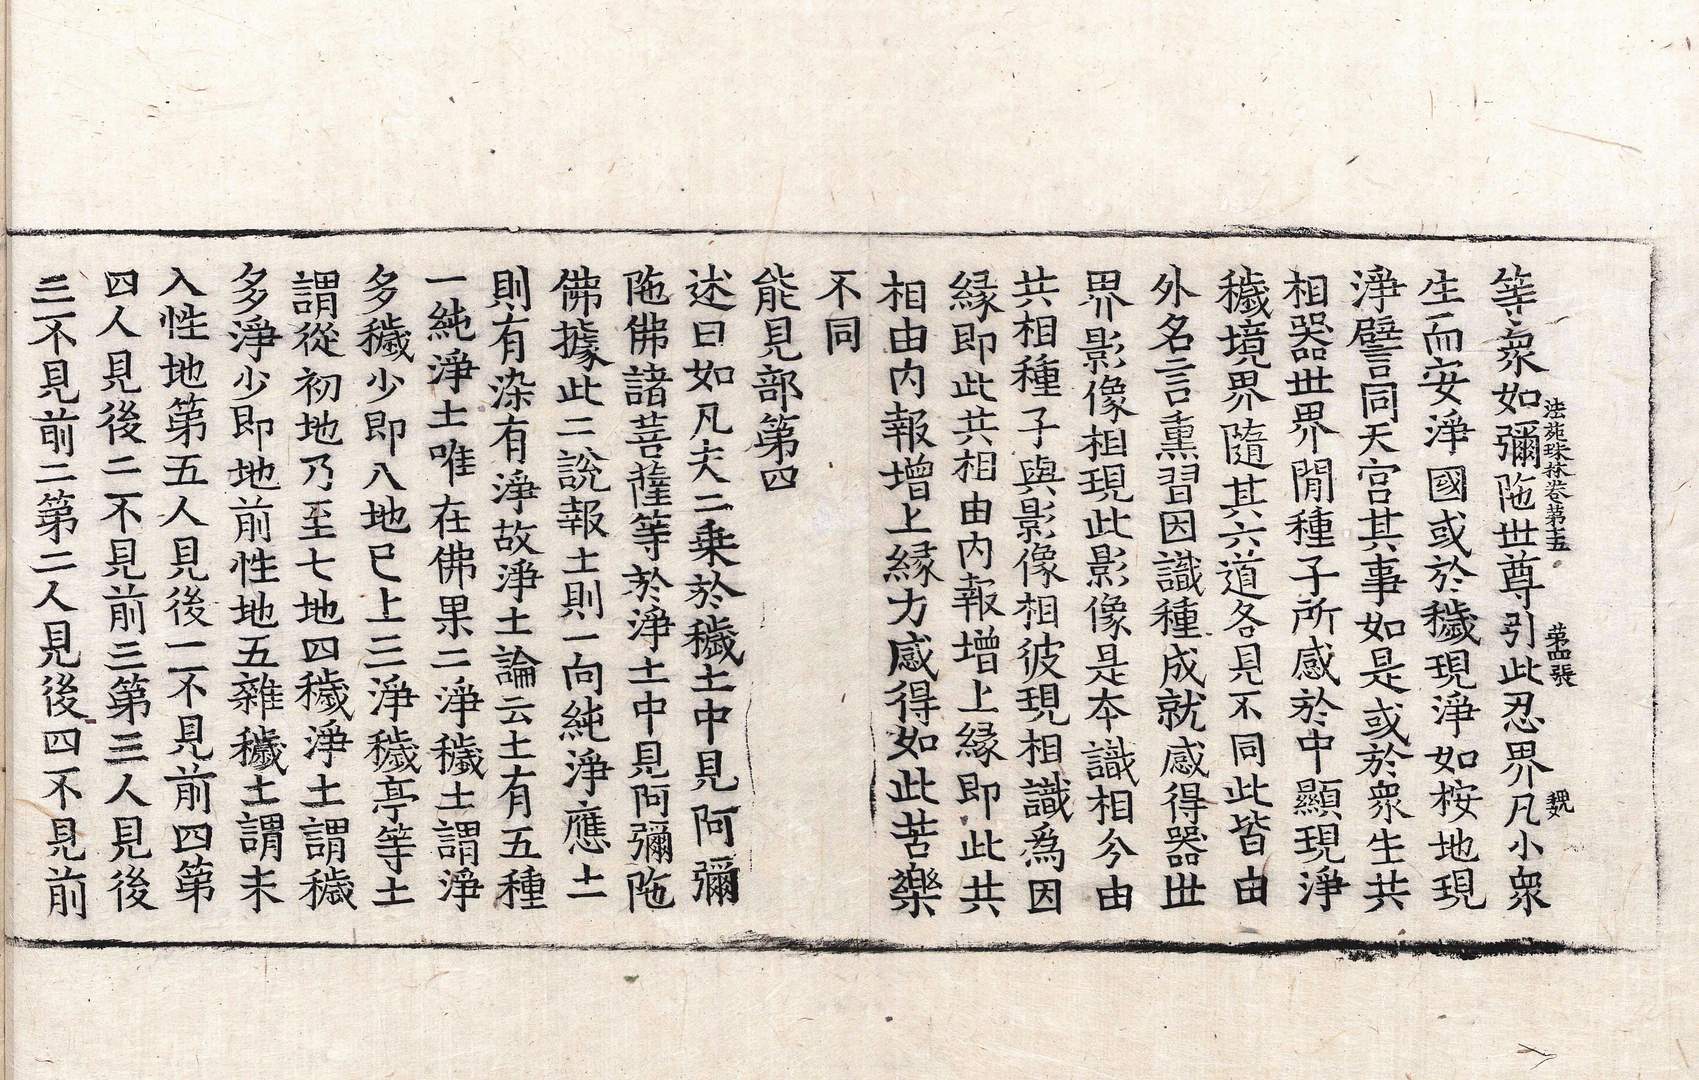 法苑珠林卷第十五　第四張　魏
等衆如彌陁世尊引此忍界凡小衆
生而安淨國或於穢現淨如桉地現
淨譬同天宮其事如是或於衆生共
相器世界閒種子所感於中顯現淨
穢境界隨其六道各見不同此皆由
外名言熏習因識種成就感得器世
界影像相現此影像是本識相今由
共相種子與影像相彼現相識爲因
縁即此共相由内報增上縁即此共
相由内報增上縁力感得如此苦樂
不同
能見部第四
述曰如凡夫二乗於穢土中見阿彌
陁佛諸菩薩等於淨土中見阿彌陁
佛據此二說報土則一向純淨應土
則有染有淨故淨土論云土有五種
一純淨土唯在佛果二淨穢土謂淨
多穢少即八地已上三淨穢亭等土
謂從初地乃至七地四穢淨土謂穢
多淨少即地前性地五雜穢土謂未
入性地第五人見後一不見前四第
四人見後二不見前三第三人見後
三不見前二第二人見後四不見前